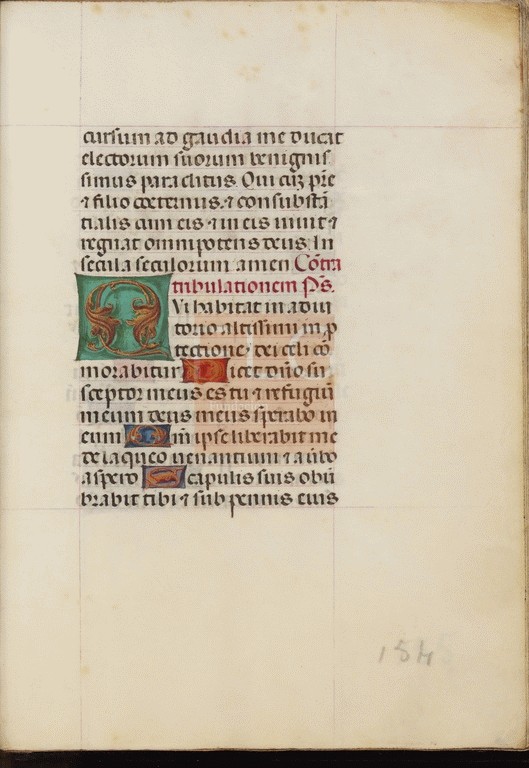 cursum ad gaudia me ducat
electorum suorum benignis
simus paraclitus. Qui cū pr̄e
⁊ filio coeternus ⁊ consubstā
tialis cum eis ⁊ in eis uiuit ⁊
regnat omnipotens deus. In
secula seculorum amen Cōtra
tribulationem Ps̄.
QVi habitat in adiu
torio altissimi in p
tectione dei celi cō
morabitur Dicet dn̄o su
sceptor meus es tu ⁊ refugiū
meum deus meus sperabo in
eum Qm̄ ipse liberabit me
de laqueo uenantium ⁊ a ūbo
aspero Scapulis suis obū
brabit tibi ⁊ sub pennis eius
154